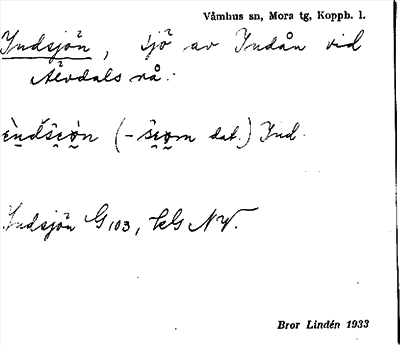 Våmhus sn, Mora tg, Koppb. l.
Indsjön, sjö av Indån vid
Älvdals rå.
(- dat.) Ind.
Indsjön G 103, kG NV.
Bror Lindén 1933